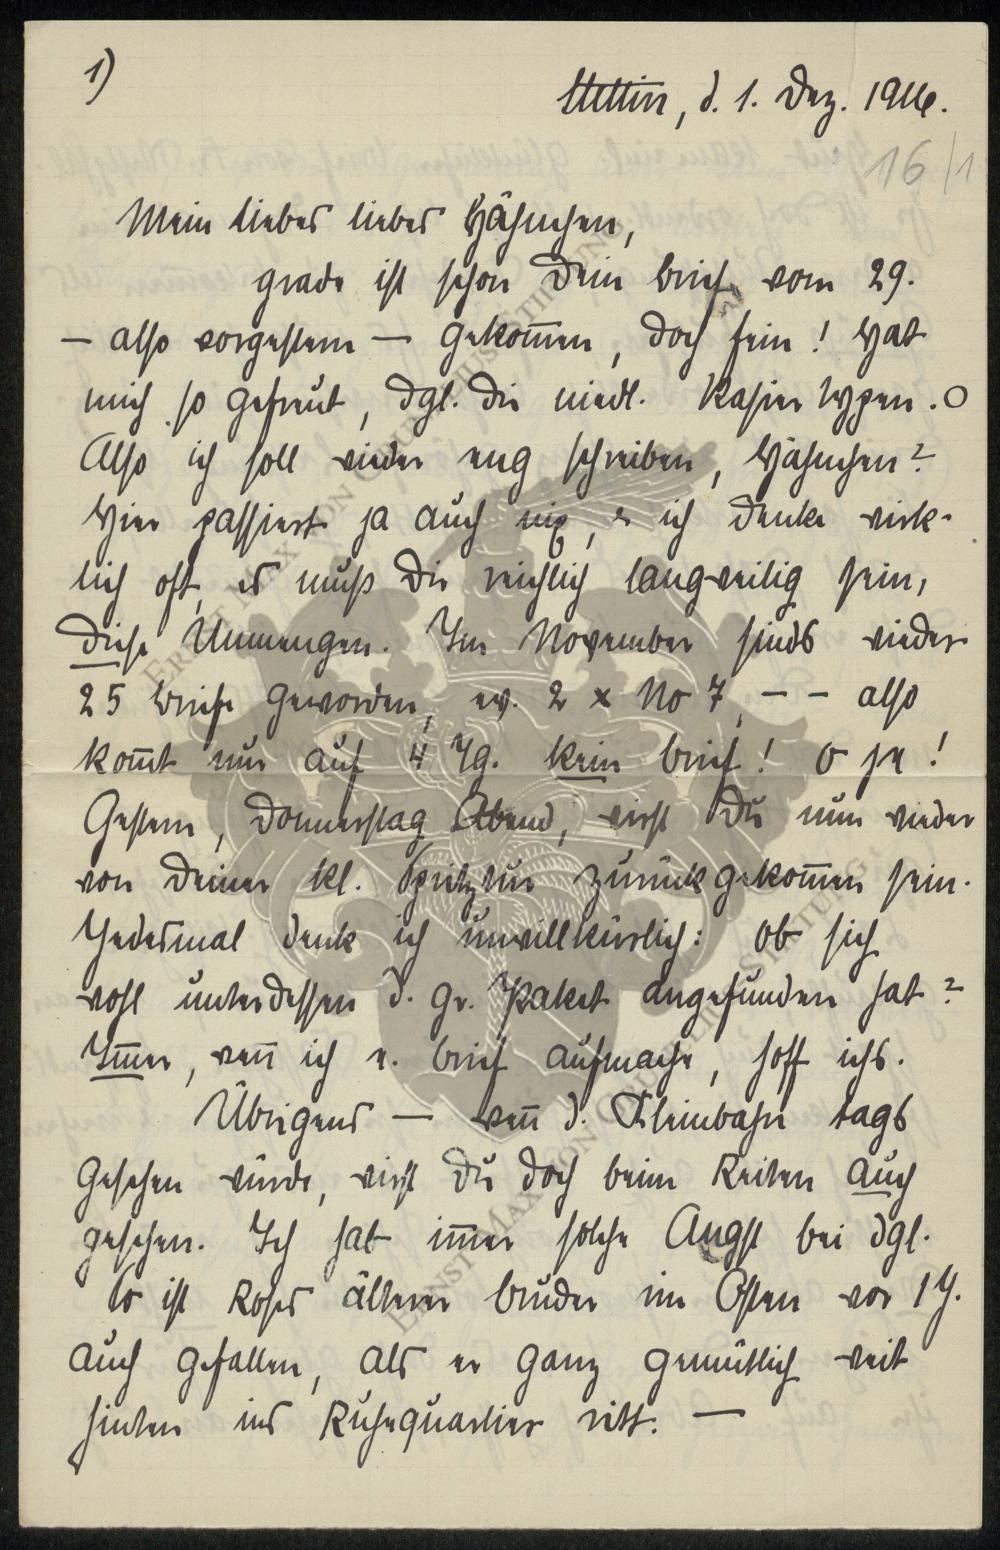 1)
Stettin, d. 1. Dez. 1916.
16/1
Mein liebes liebes Hähnchen,
grade ist schon Dein Brief vom 29.
– also vorgestern – gekom̄en, doch fein! Hat
mich so gefreut, dgl. die niedl. Kasierlypen. O
Also ich soll wieder eng schreiben, Hähnchen?
Hier passiert ja auch nix, u ich denke wirk-
lich oft, es muß Dir reichlich langweilig sein,
diese Unmengen. Im November sinds wieder
25 Briefe geworden, ev. 2 x No 7, – – also
kom̄t nur auf 4 Tg. kein Brief! O je!
Gestern, Donnerstag Abend, wirst Du nun wieder
von Deiner kl. Spritztur zurückgekom̄en sein.
Jedesmal denk ich unwillkürlich: ob sich
wohl unterdessen d. gr. Paket angefunden hat?
Im̄er, wen̄ ich e. Brief aufmache, hoff ichs.
Übrigens – wen̄ d. Kleinbahn tags
gesehen würde, wirst Du doch beim Reiten auch
gesehen. Ich hab im̄er solche Angst bei dgl.
So ist Roses älterer Bruder im Osten vor 1 J.
auch gefallen, als er ganz gemütlich weit
hinten ins Ruhequartier ritt. –
ERNST MAX VON GRUNELIUS-STIFTUNG
ERNST MAX VON GRUNELIUS-STIFTUNG